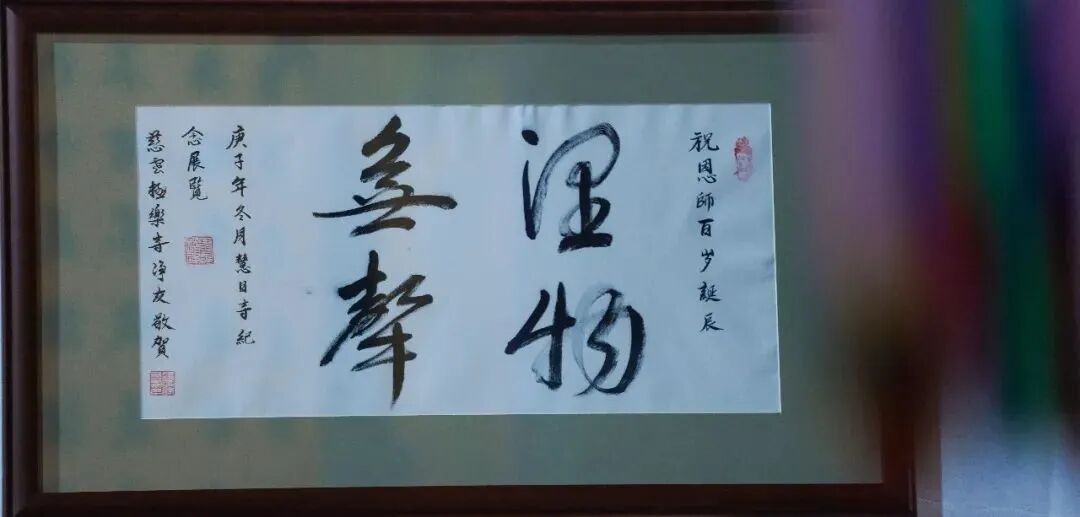 祝恩師百岁誕辰
润物
無聲
庚子年冬月慧日寺紀
念展覧
慈雲極樂寺净友敬賀